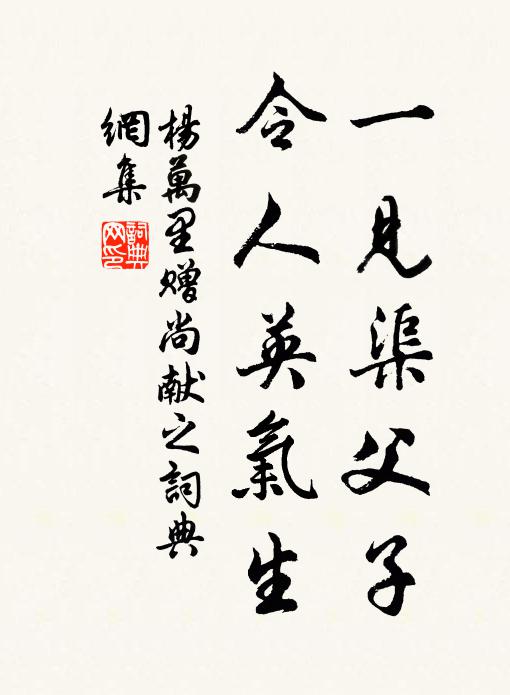 一見渠父子
令人英氣生
楊萬里贈尚献之詞典
網集
詞典
网印